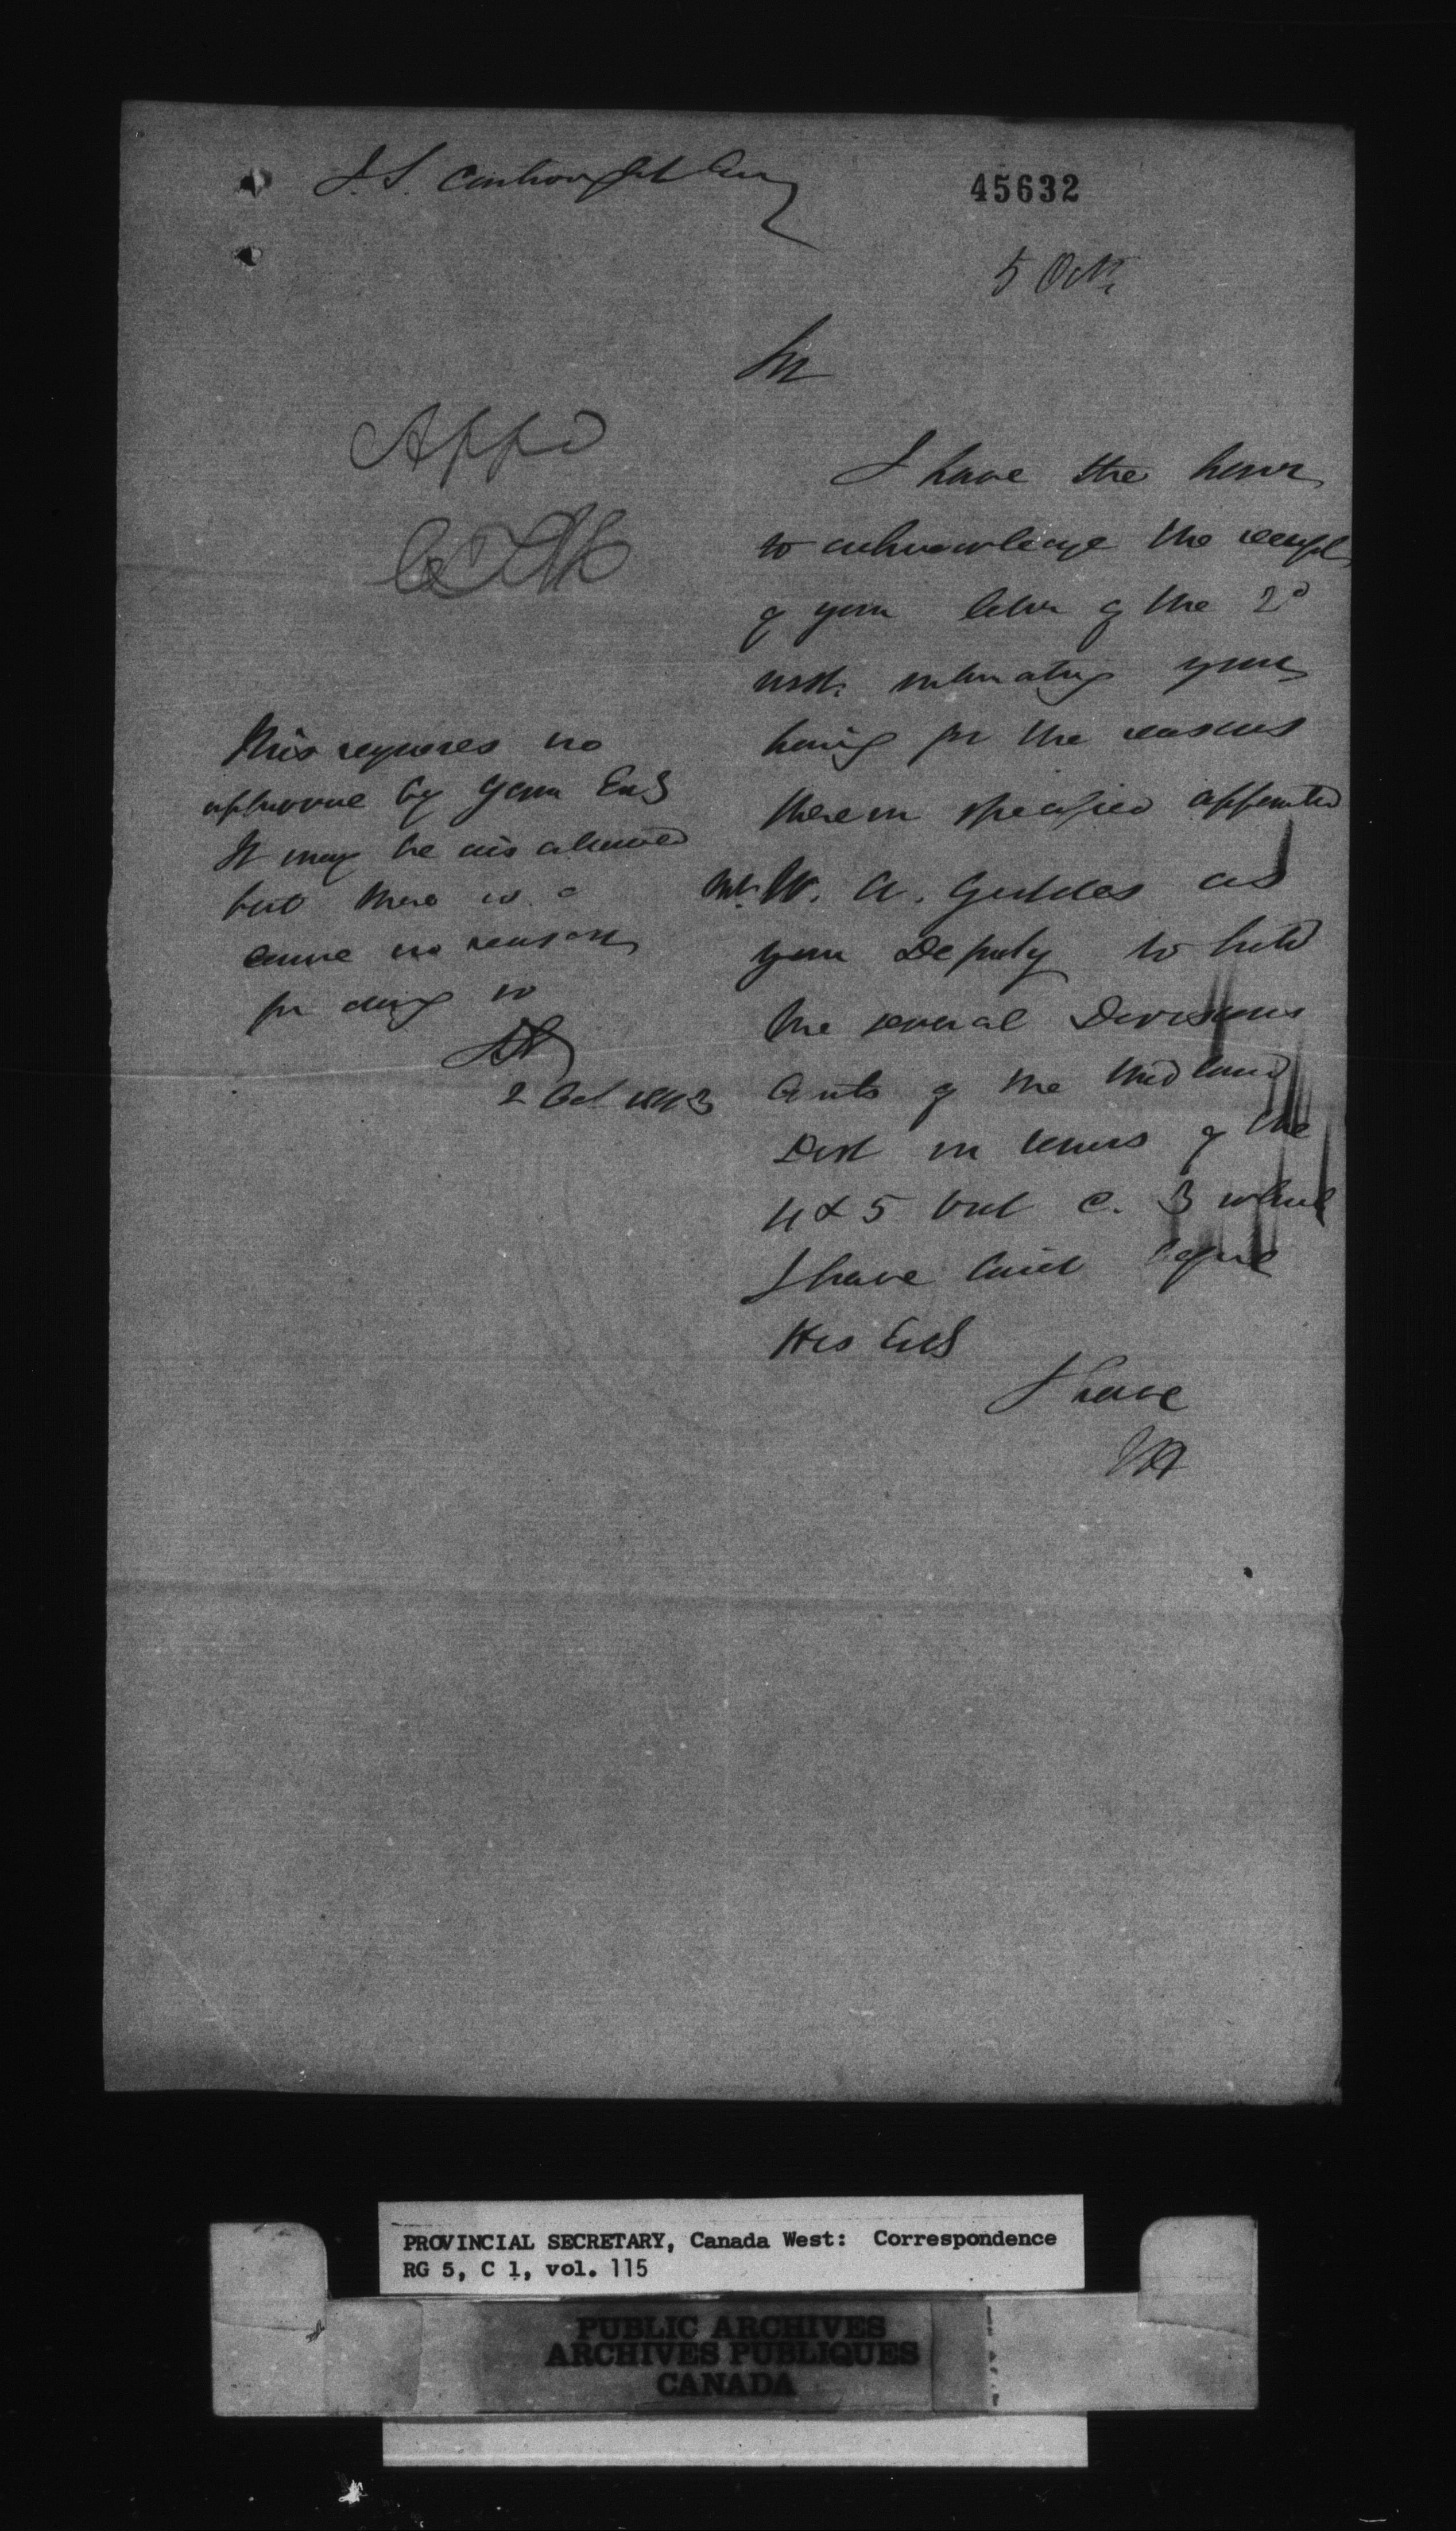 J. S. Cartwright Esq
45632
5 Octr
Sir
Appd
I have the honor
to acknowledge the receipt
of your letter of the 2d
inst. intimating your
having for the reasons
therein specified appointed
Mr. W. A. Geddes as
your Deputy to hold
the several Divisions
Courts of the Midland
Dist in terms of the
4 & 5 Vict C. 3 which
I have laid before
His Exc
I have
This requires no
approval by Your Exc
It may be disallowed
but there is of
course no reason
for doing so
2 Oct 1843
PROVINCIAL SECRETARY, Canada West: Correspondence
RG 5, C 1, vol. 115
PUBLIC ARCHIVES
ARCHIVES PUBLIQUES
CANADA